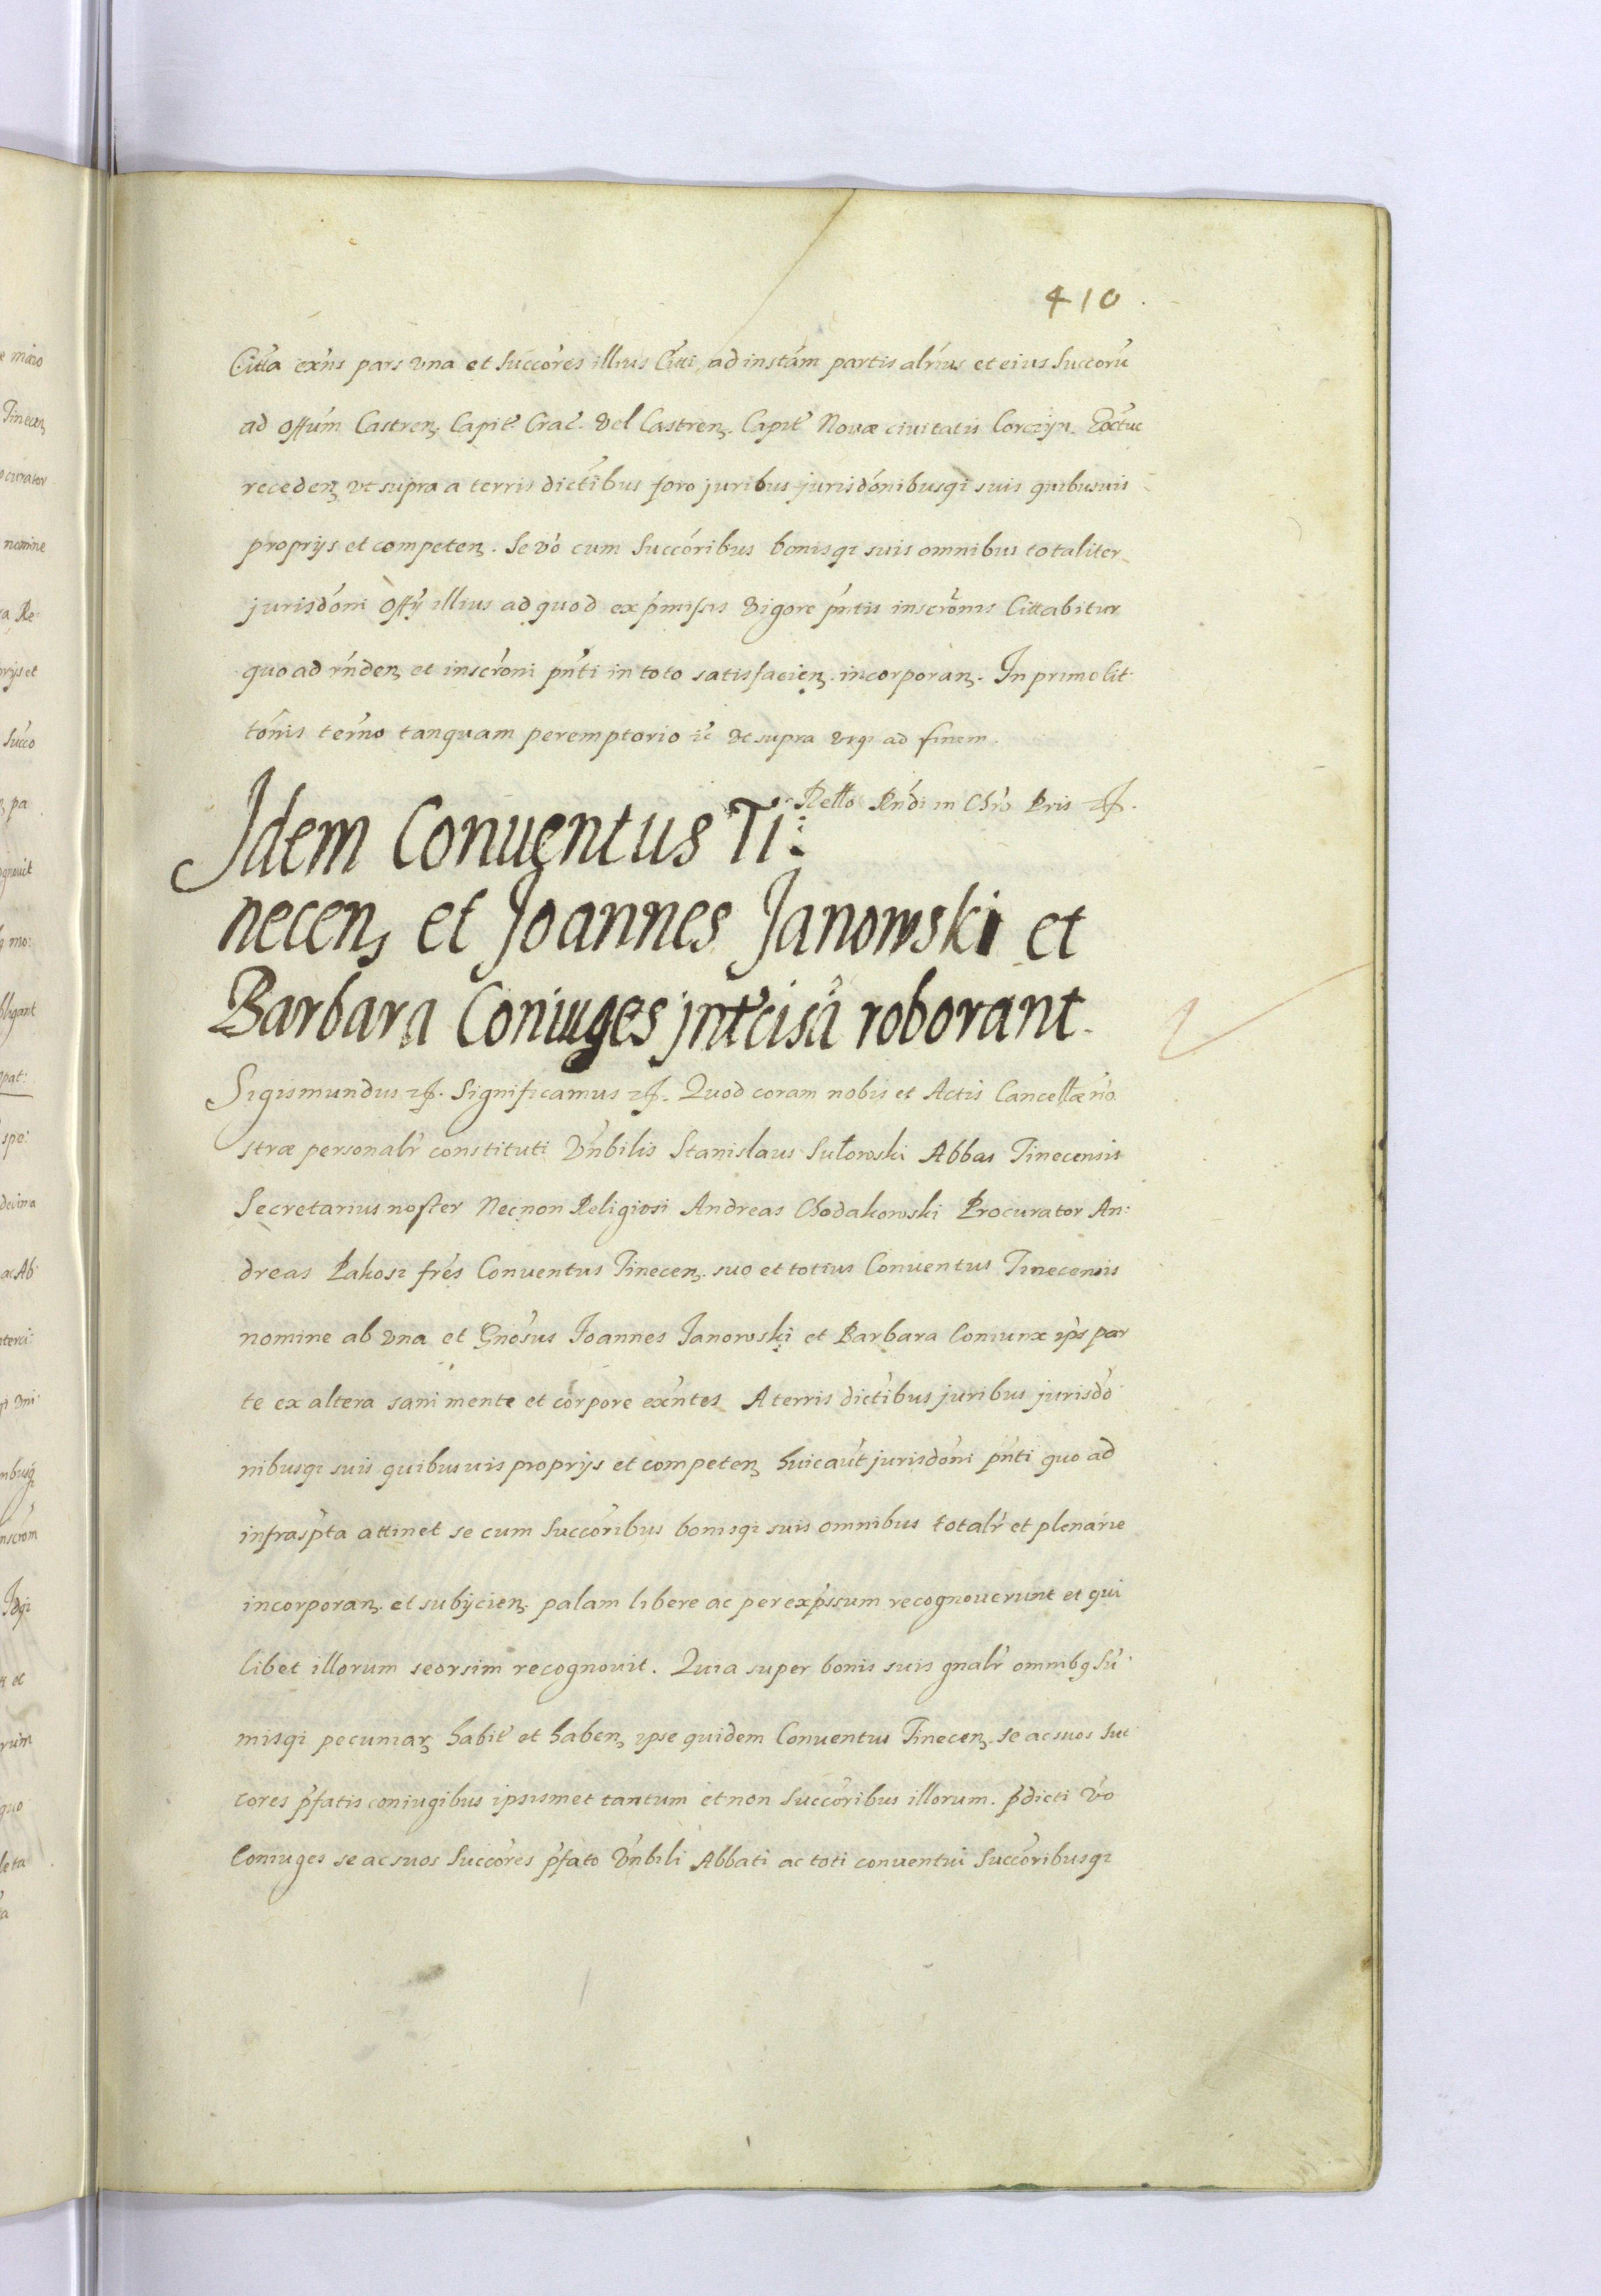 410.
Citta exñs pars vna et succores illius Citti, ad instam partis alrius et eius succorũ
ad Offum Castren. Capit. Crac. Vel Castren. Capit Nouæ ciuitatis Corczyn
receden vt supra a terris dictibus foro juribus jurisdonibusqȝ suis quibusuis
proprijs et competen. Se vo cum succoribus bonisqȝ suis omnibus totaliter
jurisdoni Offÿ illius ad quod ex pmissis vigore pntis inscronis Cittabitur
quo ad rñden et inscroni pnti in toto satisfacien. incorporan. In primo Cit
tonis termo tanquam peremptorio ec vt supra vsqȝ ad finem.
Retto Rndi in Chro Pris etc.
Idem Conuentus Ti:
necen, et Joannes Janowski et
Barbara Coniuges intcisũ roborant.
Sigismundus etc. Significamus etc. Quod coram nobis et Actis Cancellæ no
stræ personalr constituti Vnbilis Stanislaus Sułowski Abbas Tinecensis
Secretarius noster Necnon Religiosi Andreas Chodakowski Procurator An:
dreas Pakosz fres Conuentus Tinecen. suo et totius Conuentus Tinecensis
nomine ab vna et Gnosus Joannes Janowski et Barbara Coniunx ips par
te ex altera sani mente et corpore exntes A terris dictibus juribus jurisdo
nibusqȝ suis quibusuis proprijs et competen, huicaut jurisdoni pnti quo ad
infraspta attinet se cum succoribus bonisqȝ suis omnibus totalr et plenarie
incorporan. et subÿcien. palam libere ac per expssum recognouerunt et qui
libet illorum seorsim recognouit. Quia super bonis suis gnalr omnibq Sũ
misqȝ pecuniar, habit et haben, ipse quidem Conuentus Tinecen. se ac suos suc
cores pfatis coniugibus ipsismet tantum et non succoribus illorum. pdicti vo
Coniuges se ac suos succores pfato Vnbili Abbati ac toti conuentui succoribusqȝ